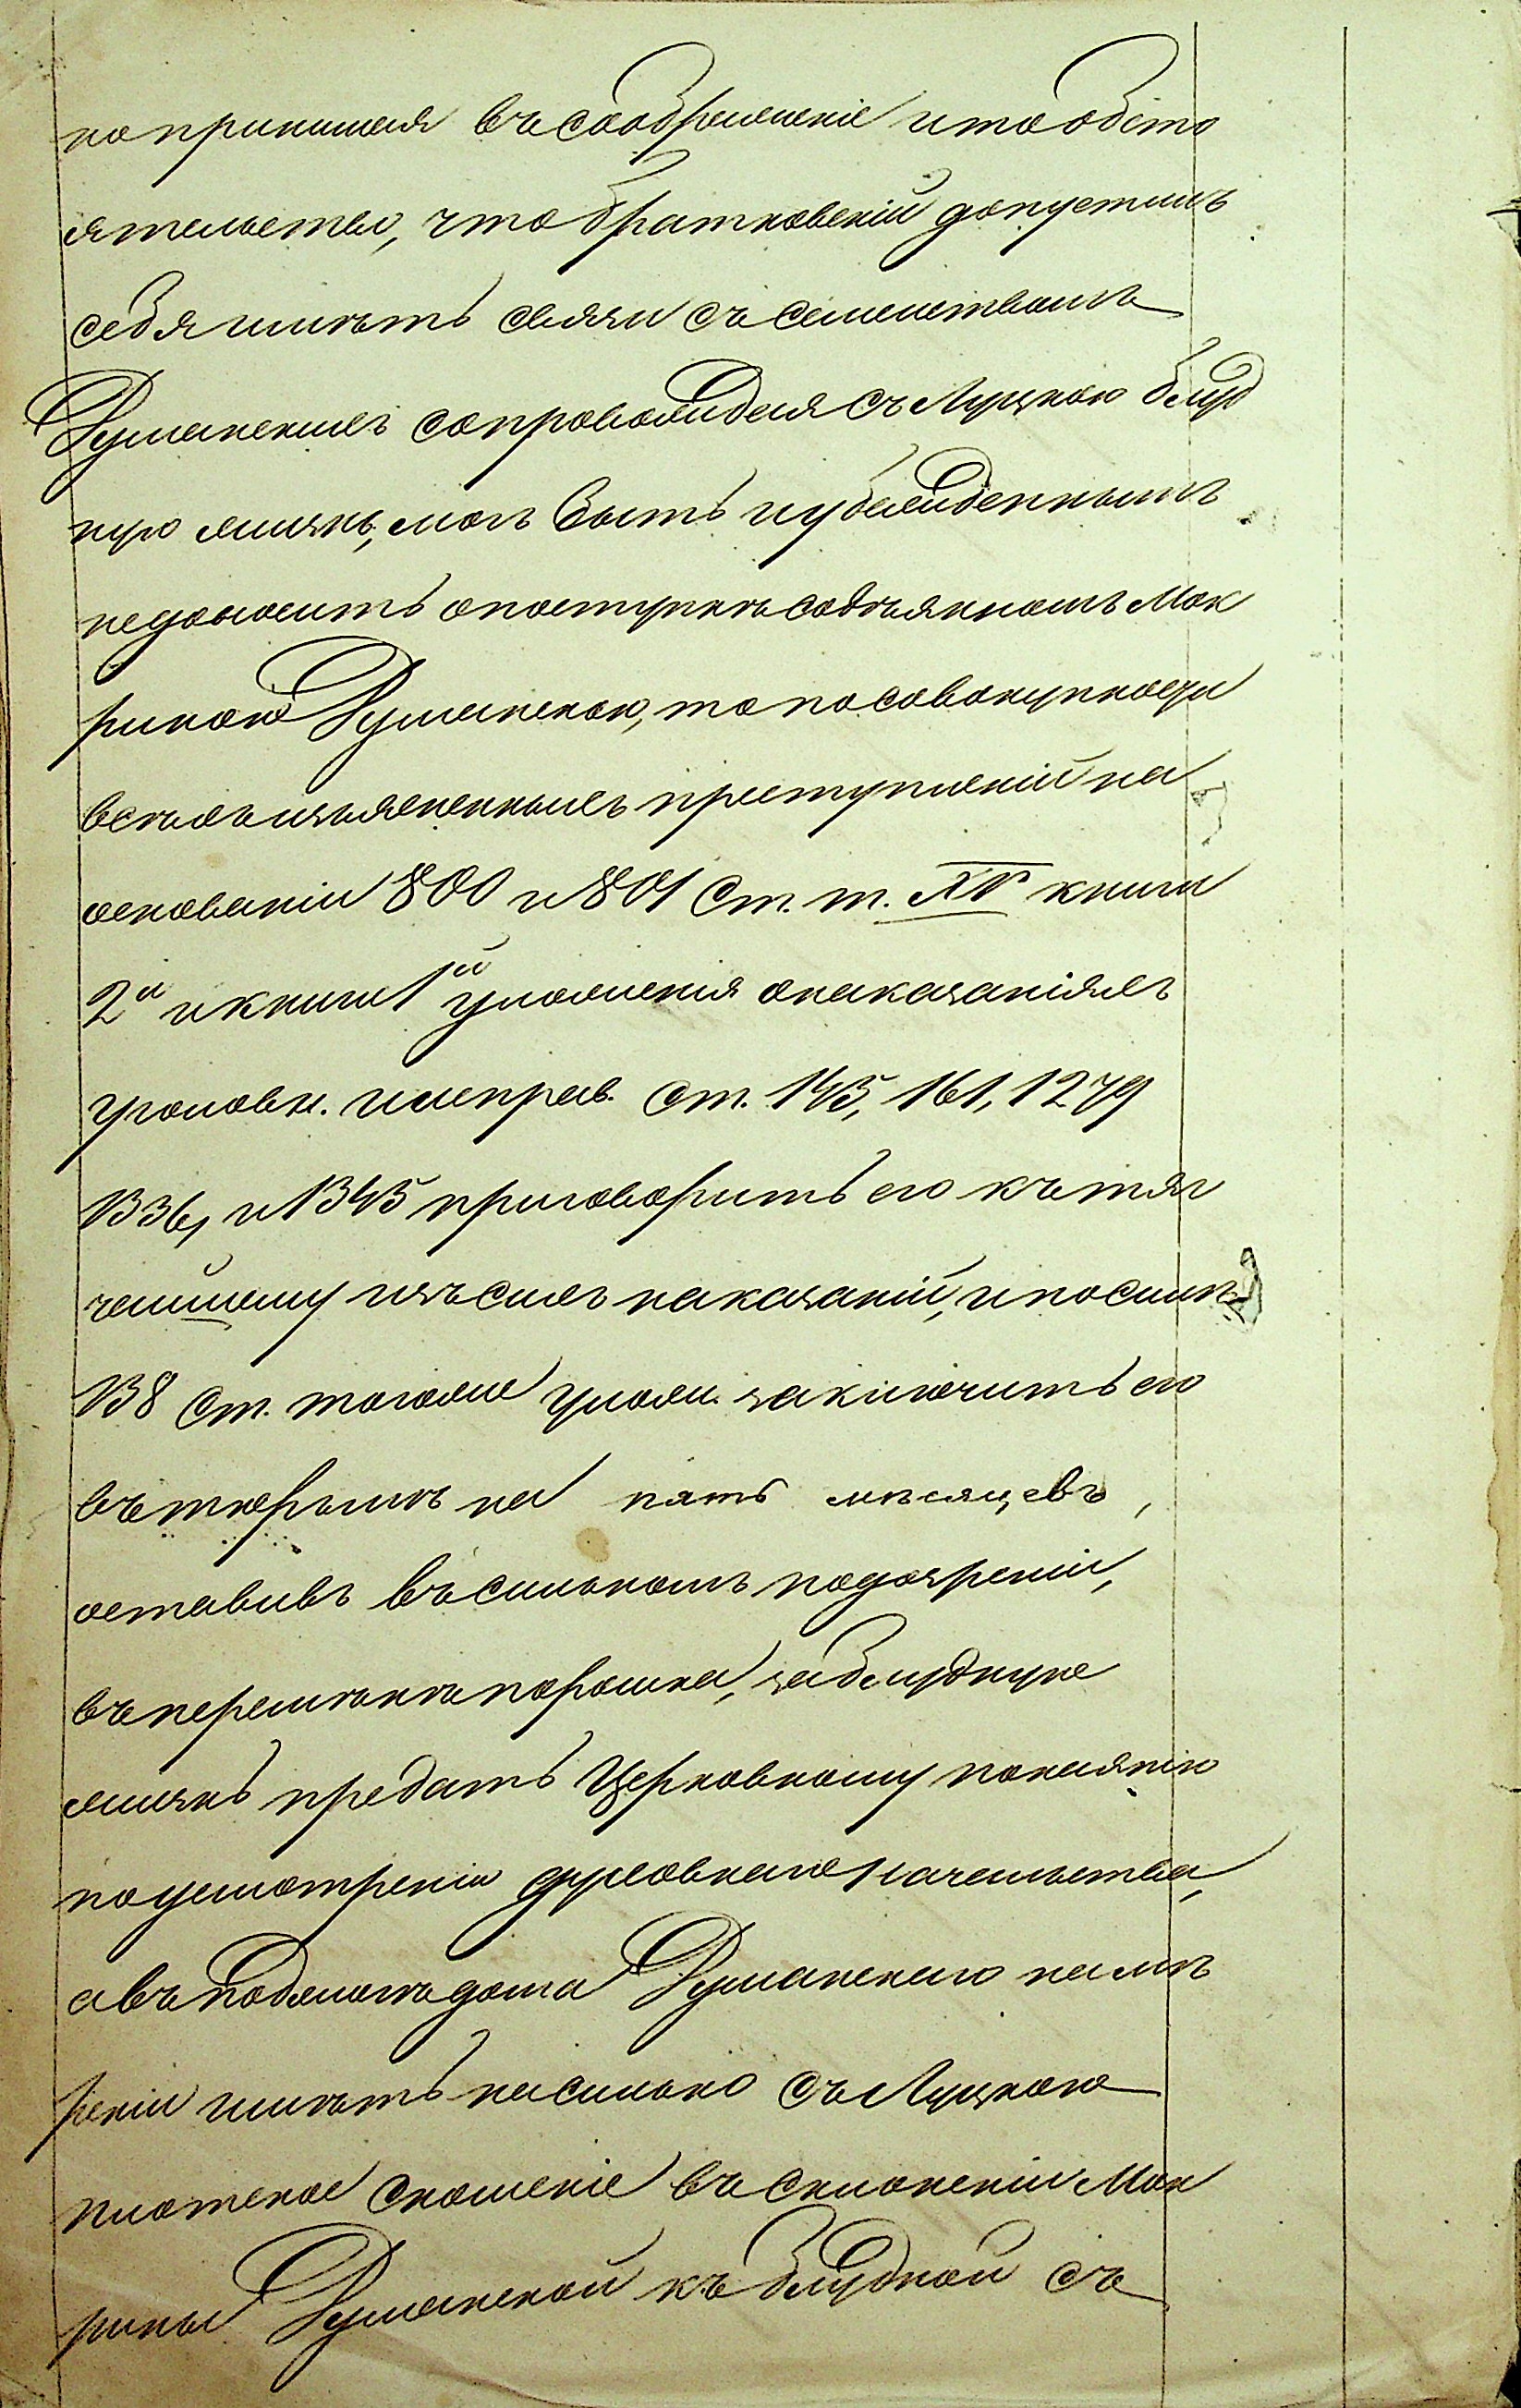 но принимая въ соображеніе и то обсто
ятельство, что Братковскій допустилъ
себя имѣть связи съ семействомъ
Думанскихъ сопровождая съ Луцкою блуд
ную жизнь, могъ быть и убѣжденнымъ
недоносить о поступкѣ содѣянномъ Мок
риною Думанскою, то по совокупности
всѣхъ изъясненныхъ преступленій на
основаніи 800 и 801 Ст. т. XV книги
2й и книги 1й уложенія о наказаніяхъ
уголовн. и исправ. Ст. 145, 161, 1279
1336, и 1345 приговорить его къ тяг
чайшему изъ сихъ наказаній, и по силѣ
138 Ст. того же улож. заключить его
въ тюрьмѣ на пять мѣсяцевъ,
оставивъ въ сильномъ подозрѣніи,
въ перемѣнѣ порошка, за блудную
жизнь предать Церковному покаянію
по усмотрѣнію духовнаго начальства,
а въ поджогѣ дома Думанскаго намѣ
реніи имѣть насильно съ Луцкою
плотское сношеніе въ склоненіи Мок
рины Думанской къ блудной съ